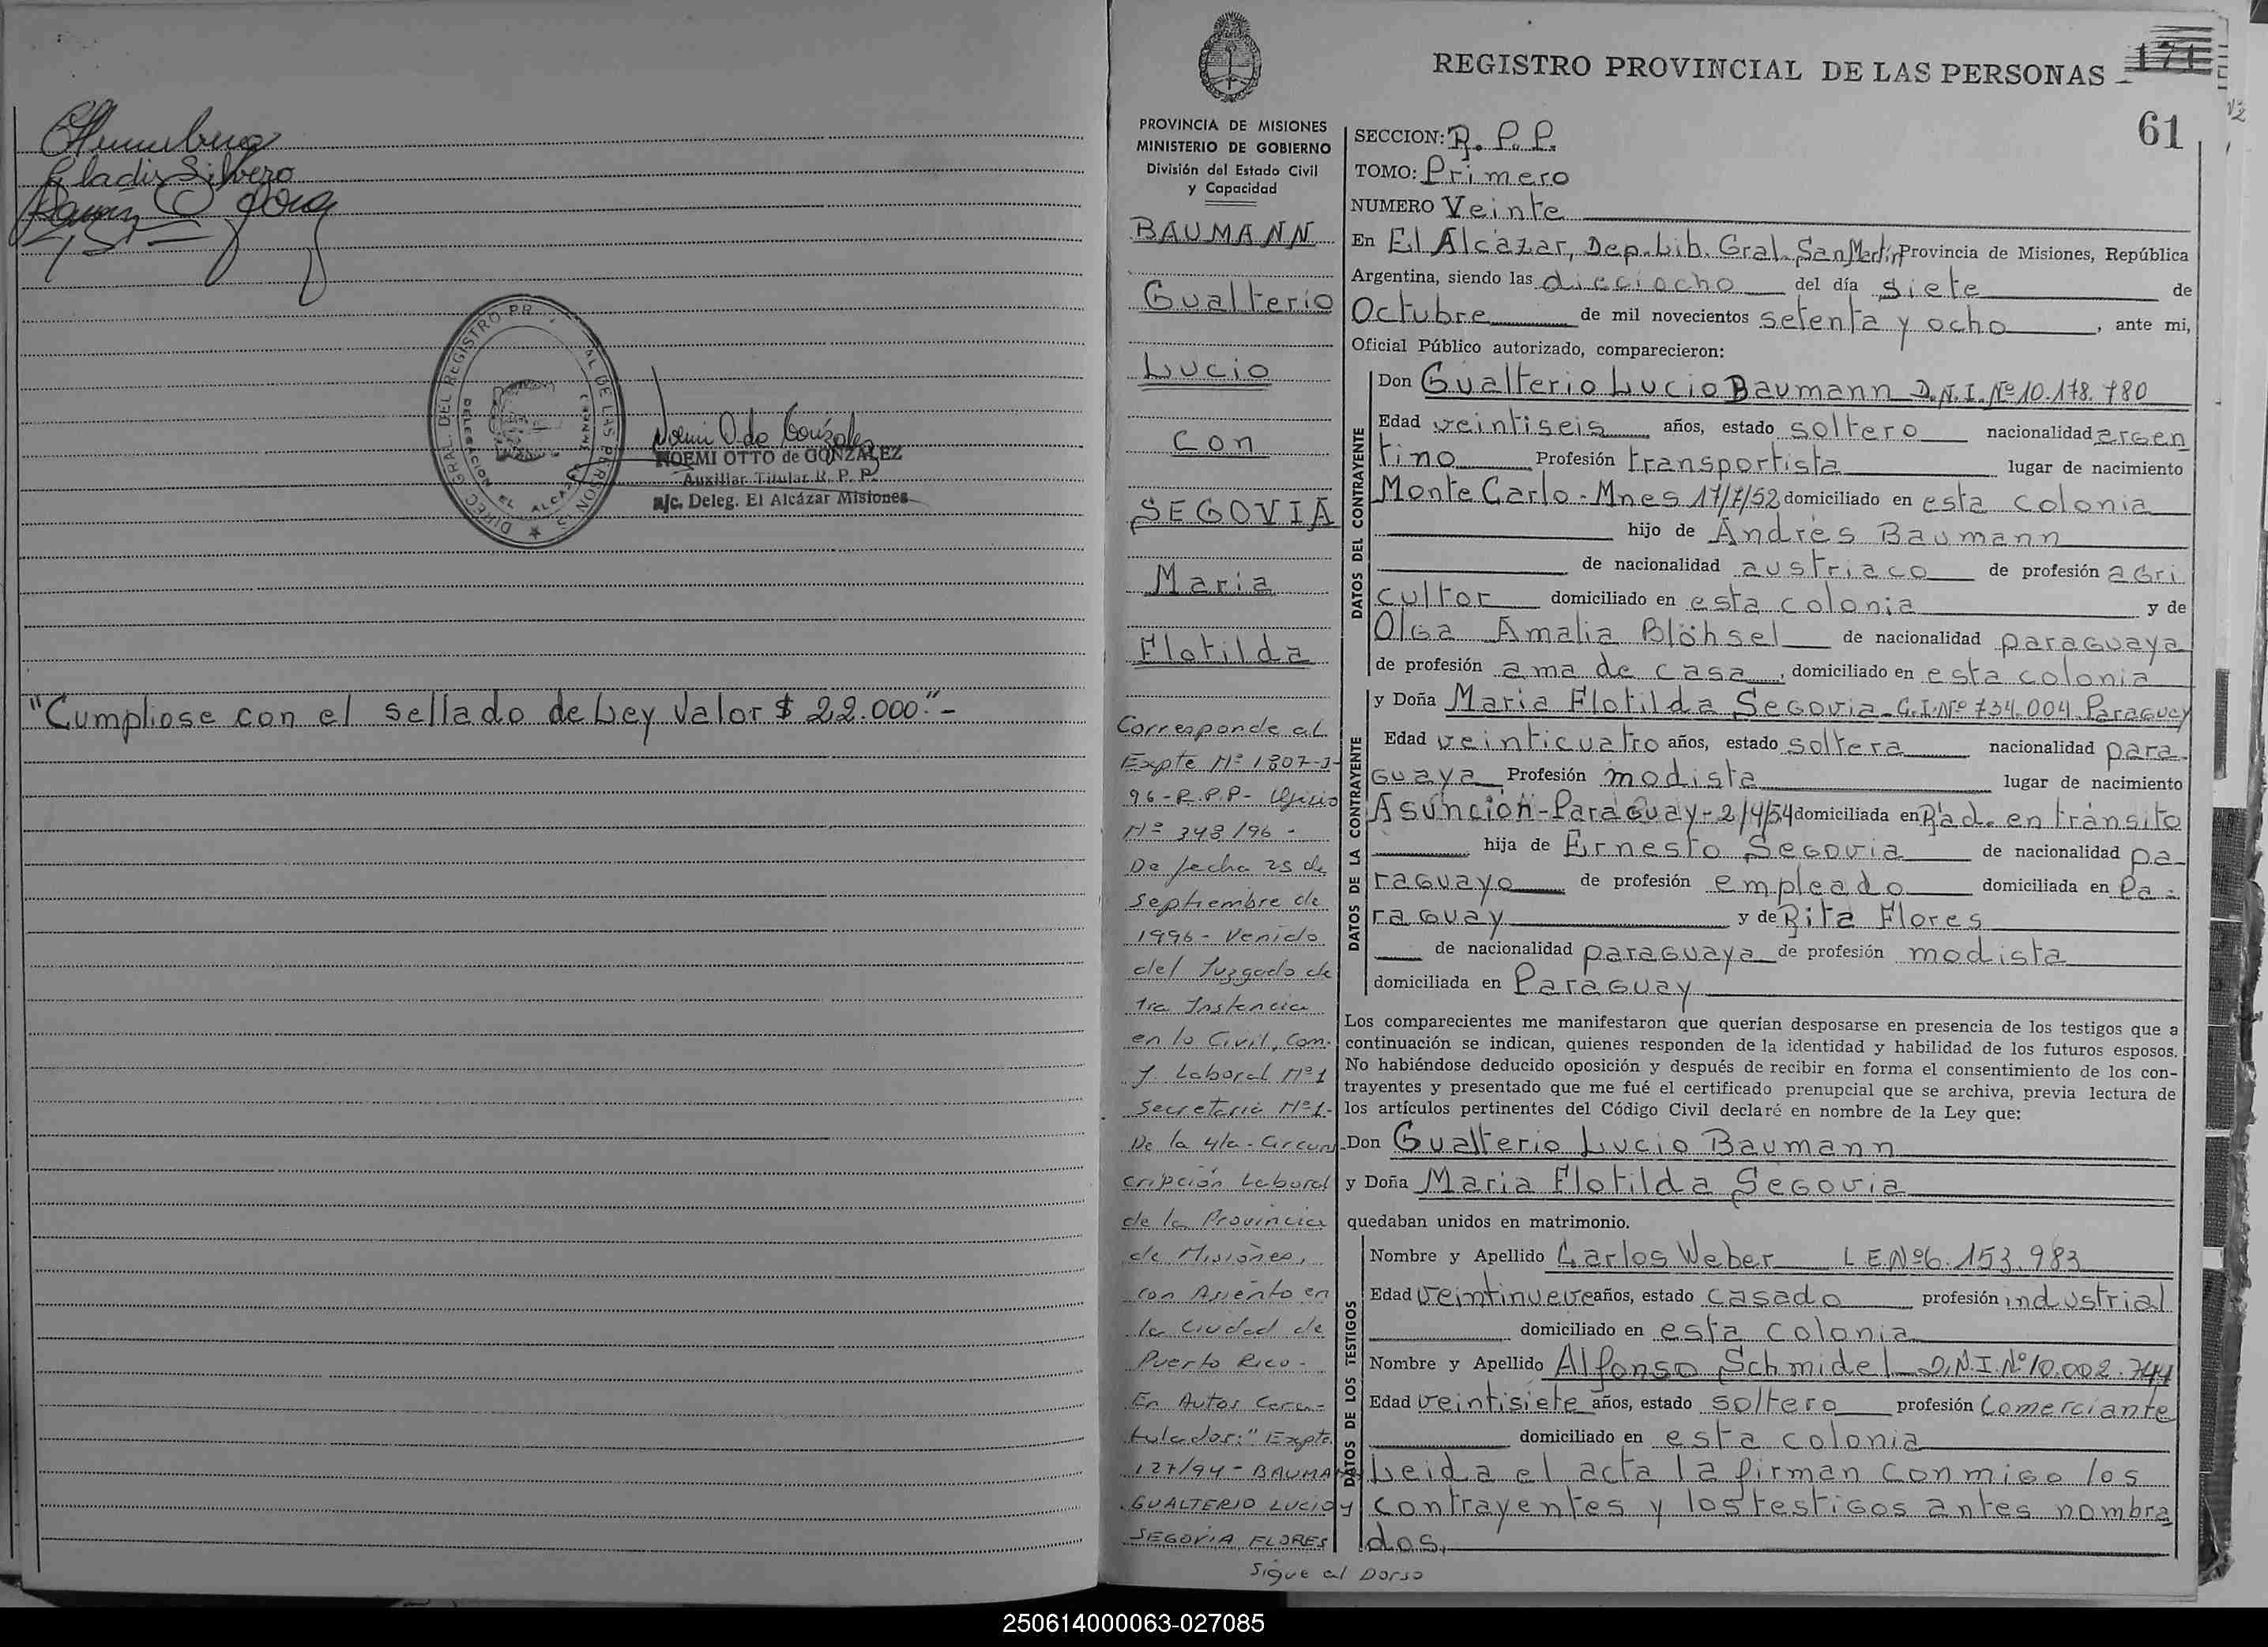 Gladis Silvero
DIREC. GRAL. DEL REGISTRO PR AL DE LAS PERSONAS
DELEGACION EL ALCAZAR
NOEMI OTTO de GONZALEZ
Auxiliar Titular R. P. P.
a/c. Deleg. El Alcázar Misiones
"Cumpliose con el sellado de Ley Valor $ 22.000."-
REGISTRO PROVINCIAL DE LAS PERSONAS
171
61
PROVINCIA DE MISIONES
MINISTERIO DE GOBIERNO
División del Estado Civil
y Capacidad
BAUMANN
Gualterio
Lucio
con
SEGOVIA
Maria
Flotilda
Corresponde al
Expte Nº 1807-J-
96-R.P.P- Oficio
Nº 348/96 -
De fecha 25 de
septiembre de
1996- Venido
del Juzgado de
1ra Instancia
en lo Civil, Com.
y. Laboral Nº1
Secretaria Nº1-
De la 4ta-Circuns
cripción Laboral
de la Provincia
de Misiones,
con Asiento en
la Ciudad de
Puerto Rico-
En Autos Cara-
tulados: "Expte.
127/94- BAUMANN
GUALTERIO LUCIO y
SEGOVIA FLORES
Sigue al Dorso
SECCION: R. P. P.
TOMO: Primero
NUMERO Veinte
En El Alcázar, Dep. Lib. Gral. San Martín Provincia de Misiones, República
Argentina, siendo las dieciocho del día siete de
Octubre de mil novecientos setenta y ocho, ante mi,
Oficial Público autorizado, comparecieron:
DATOS DEL CONTRAYENTE
Don Gualterio Lucio Baumann D.N.I. Nº 10.178.780
Edad veintiseis años, estado soltero nacionalidad argen
tino Profesión transportista lugar de nacimiento
Monte Carlo-Mnes 17/7/52 domiciliado en esta colonia
hijo de Andrés Baumann
de nacionalidad austriaco de profesión agri
cultor domiciliado en esta colonia y de
Olga Amalia Blöhsel de nacionalidad paraguaya
de profesión ama de casa, domiciliado en esta colonia
DATOS DE LA CONTRAYENTE
y Doña Maria Flotilda Segovia-C.I. Nº 734.004.Paraguay
Edad veinticuatro años, estado soltera nacionalidad para-
guaya Profesión modista lugar de nacimiento
Asunción-Paraguay-2/4/54 domiciliada en Rad. en tránsito
hija de Ernesto Segovia de nacionalidad pa-
raguayo de profesión empleado domiciliada en Pa-
raguay y de Rita Flores
de nacionalidad paraguaya de profesión modista
domiciliada en Paraguay
Los comparecientes me manifestaron que querían desposarse en presencia de los testigos que a
continuación se indican, quienes responden de la identidad y habilidad de los futuros esposos.
No habiéndose deducido oposición y después de recibir en forma el consentimiento de los con-
trayentes y presentado que me fué el certificado prenupcial que se archiva, previa lectura de
los artículos pertinentes del Código Civil declaré en nombre de la Ley que:
Don Gualterio Lucio Baumann
y Doña Maria Flotilda Segovia
quedaban unidos en matrimonio.
DATOS DE LOS TESTIGOS
Nombre y Apellido Carlos Weber L.E.Nº6.153.983
Edad veintinueve años, estado casado profesión industrial
domiciliado en esta colonia
Nombre y Apellido Alfonso Schmidel D.N.I. Nº10.002.744
Edad veintisiete años, estado soltero profesión Comerciante
domiciliado en esta colonia
Leida el acta la firman conmigo los
contrayentes y los testigos antes nombra
dos.
250614000063-027085